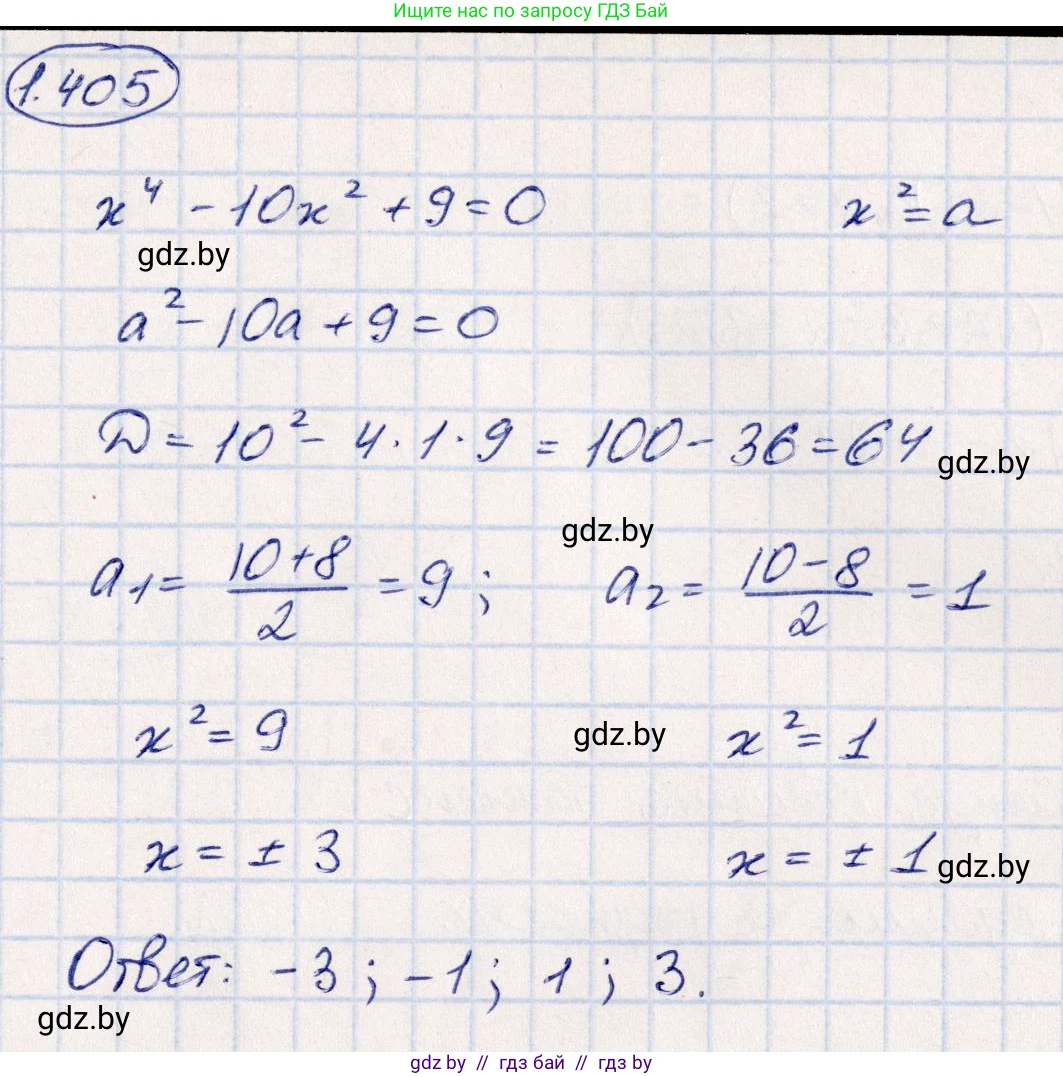 Ищите нас по запросу ГДЗ Бай
1.405
x⁴ - 10x² + 9 = 0 x² = a
gdz.by
a² - 10a + 9 = 0
D = 10² - 4·1·9 = 100 - 36 = 64 gdz.by
gdz.by
a₁ = (10+8)/2 = 9 ; a₂ = (10-8)/2 = 1
x² = 9 gdz.by x² = 1
x = ± 3 x = ± 1 gdz.by
Ответ: -3 ; -1 ; 1 ; 3.
gdz.by
gdz by // гдз бай // gdz by